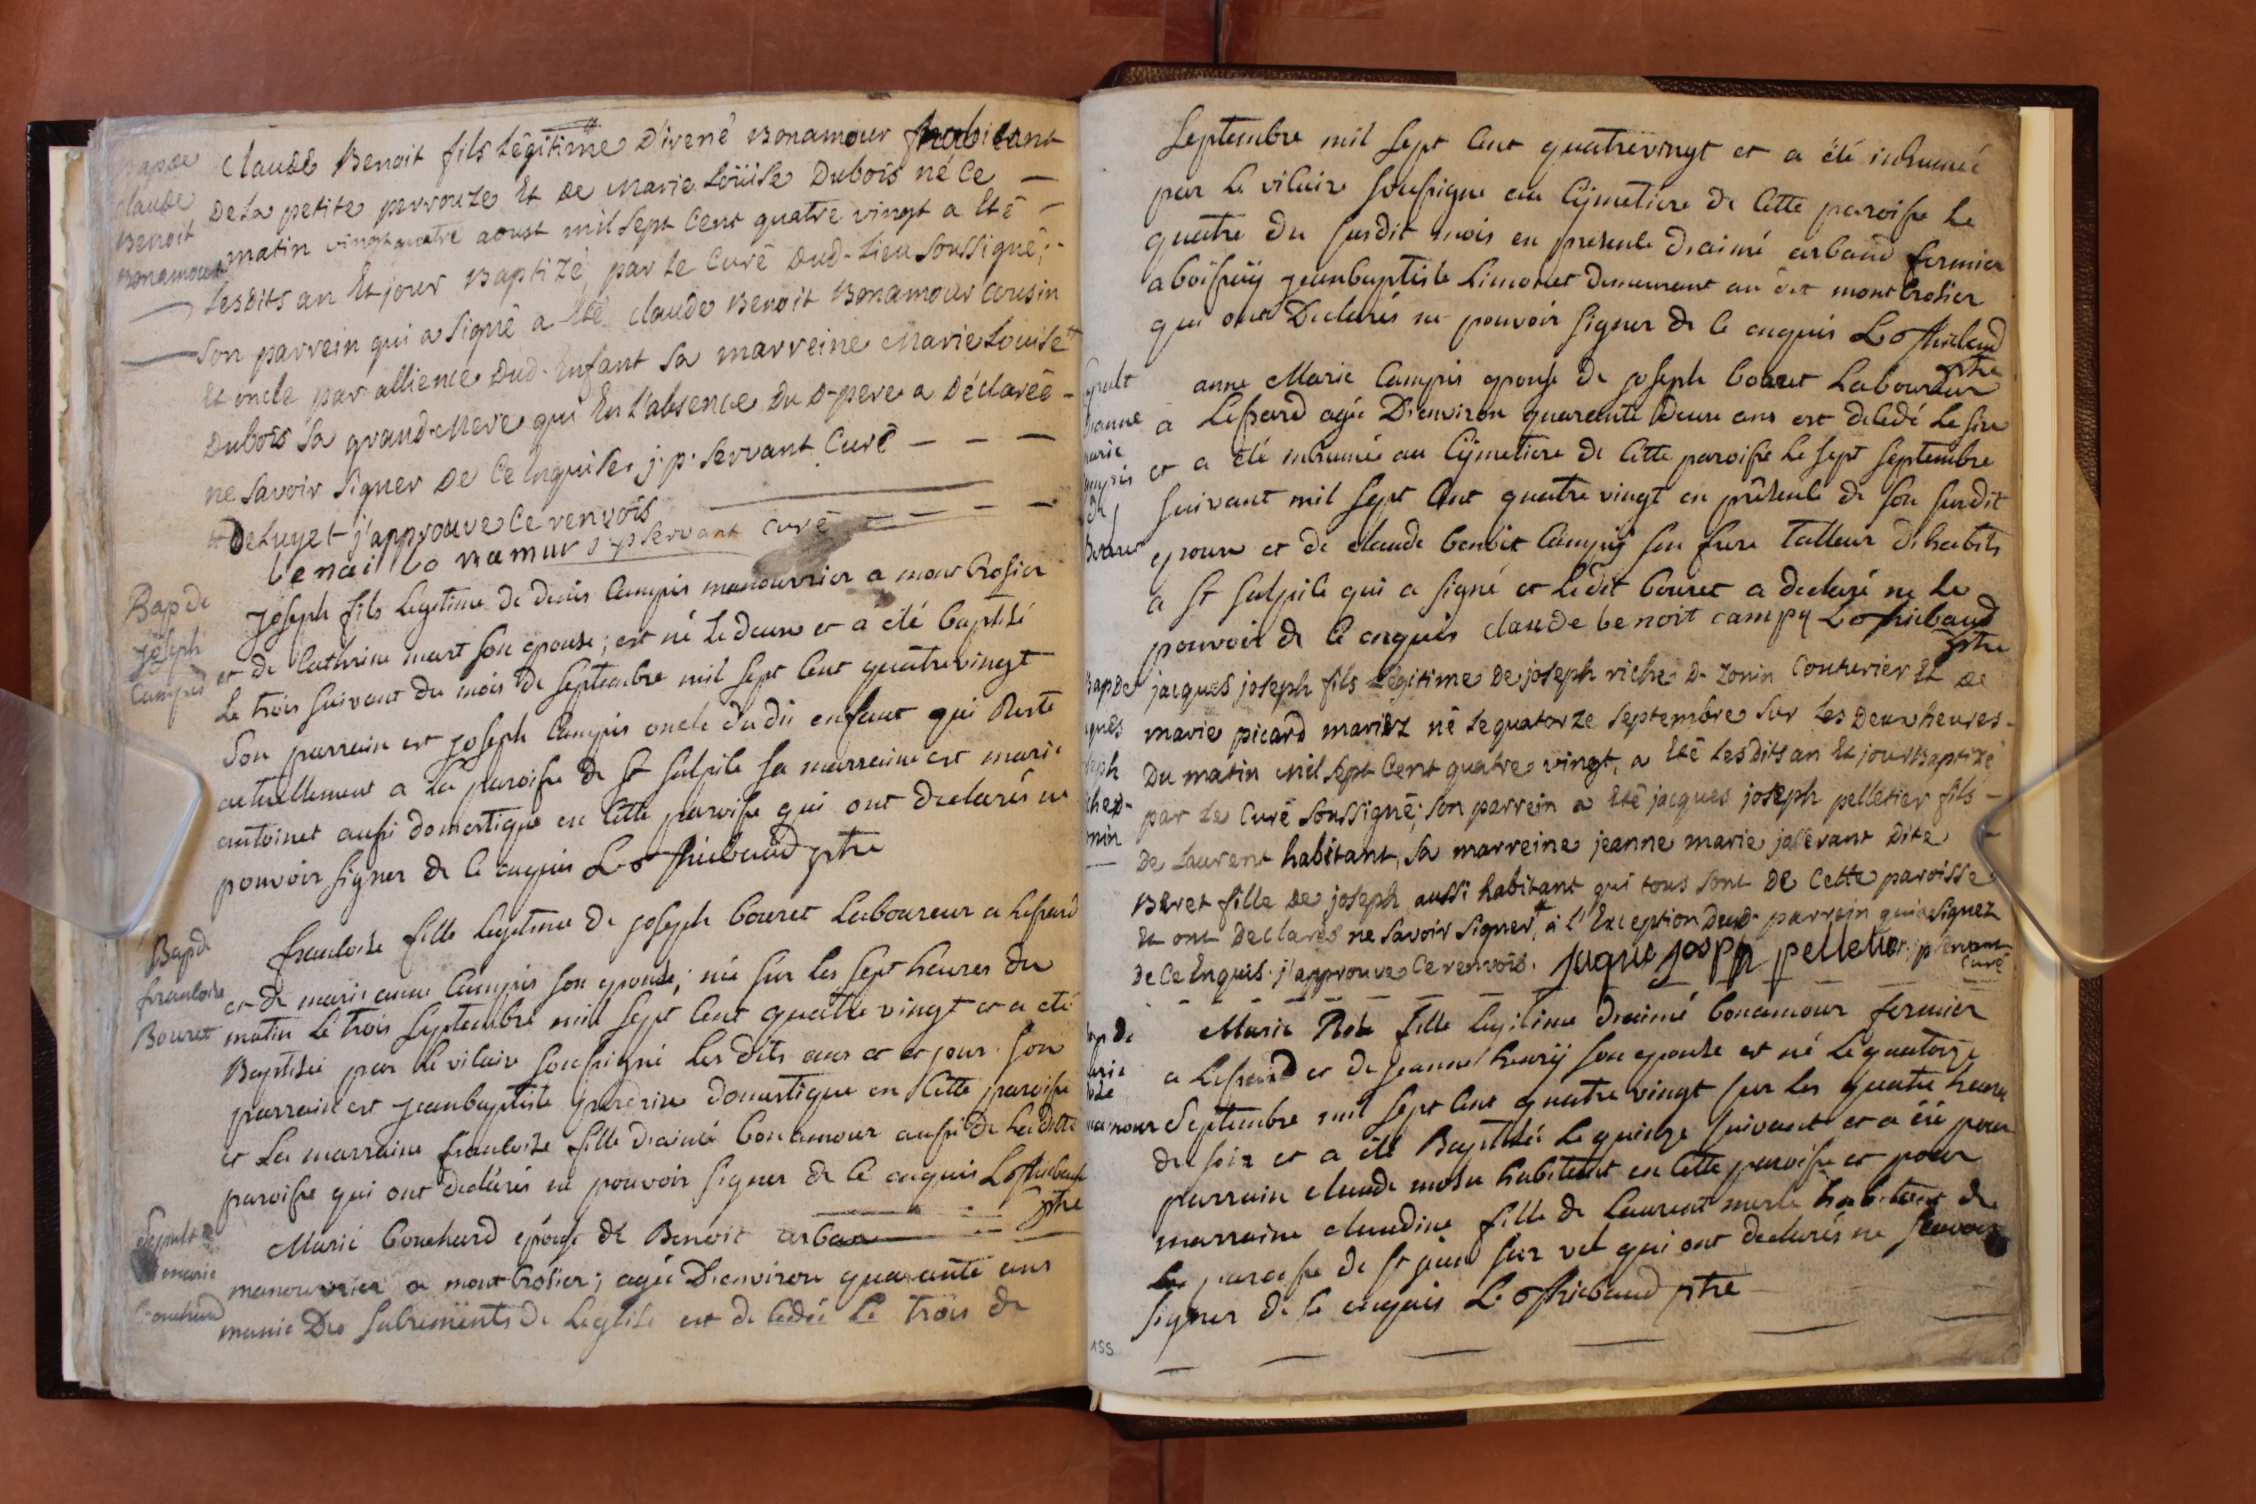 Bap de
claude
Benoit
Bonamour
claude Benoit fils légitime d'irené Bonamour habitant
De la petite perrouze Et de Marie Loüise Dubois né ce
matin vingt quatre aoust mil sept cent quatre vingt a Eté
lesdits an Et jour Baptizé, par le Curé dud. lieu soussigné;
son parrein qui a signé a Eté claude Benoit Bonamour cousin
Et oncle par allience dud. Enfant sa marreine Marie Louise
Dubois sa grand-Mere qui En l'absence du d. pere a Déclarée
ne savoir signer de ce Enquise. j. p. servant Curé
# Deluyet j'approuve ce renvois
benoi bo namur j p servant curé
Bap de
joseph
Campis
joseph fils legitime de denis Campis manouvrier a mont Crosier
et de Cathrine mart son epouse; est né le deux et a été baptisé
Le trois suivant du mois de septembre mil sept cent quatrevingt
Son parrain est joseph Campis oncle dudit enfant qui reste
actuellement a la paroisse de st sulpice sa marraine est marie
antoinet aussi domestique en cette paroisse qui ont declarés ne
pouvoir signer de ce enquis L o thiebaud ptre
Bap de
francoise
Bouret
francoise fille legitime de joseph bouret Laboureur a lessard
et de marie anne Campis son epouse; née sur les sept heures du
matin le trois septembre mill sept cent quatre vingt et a eté
Baptisée par le vicaire soussigné les dits ans et et jour. son
parrain est jeanbaptiste domestique en cette paroisse
et la marraine francoise fille d'aimé bonamour aussi de la ditte
paroisse qui ont declarés ne pouvoir signer de ce enquis L o thiebaud
ptre
Sepult de
marie
bouchard
Marie bouchard epouse de Benoit arban
manouvrier a mont Crosier; agée D'environ quarante ans
munie Des sacrements de Leglise est decedée le trois de
septembre mil sept cent quatrevingt et a été inhumée
par le vicaire soussigné au Cymetiere de Cette paroisse le
quatre du susdit mois en presence d'aimé arband fermier
a boissuÿ jeanbaptiste Limonet demeurant au dit montCrosier
qui ont Declarés ne pouvoir signer de ce enquis L o thiebaud
ptre
anne Marie Campis epouse de joseph bouret Laboureur
a Lessard agée D'environ quarante deux ans est decedé le six
et a été inhumée au Cymetiere de Cette paroisse le sept septembre
suivant mil sept cent quatre vingt en présence de son susdit
epoux et de claude benoit Campiÿ son frere Talleur d'habits
a st sulpice qui a signé et ledit bouret a declaré ne le
pouvoir de ce enquis claude benoit campy L o thiebaud
ptre
Bap de
jacques joseph fils légitime de joseph riche D. Zonin Couturier Et de
marie picard mariez né le quatorze septembre sur les Deux heures
Du matin Mil sept Cent quatre vingt, a Eté lesdits an Et jour Baptizé
par le Curé soussigné; son parrein a Eté jacques joseph pelletier fils
de Laurent habitant, sa marreine jeanne marie jallevant dite
Beret fille de joseph aussi habitant qui tous sont de Cette paroisse
Et ont Declarés ne savoir signer, à l'Exception dud. parrein qui a signez
de ce Enquis. j'approuve ce renvois. jaque josepp pelletier j p servant
curé
Marie Rose fille legitime d'aimé bonamour fermier
a Lessard et de jeanne henrÿ son epouse est né le quatorze
Septembre mil sept cent quatre vingt sur les quatre heures
du soir et a été Baptisée le quinze suivant et a eu pour
parrain claude habitant en cette paroisse et pour
marraine claudine fille de Laurent merle habitant de
la paroisse de st jean sur vel qui ont declarés ne scavoir
signer de ce enquis L o thiebaud ptre
155